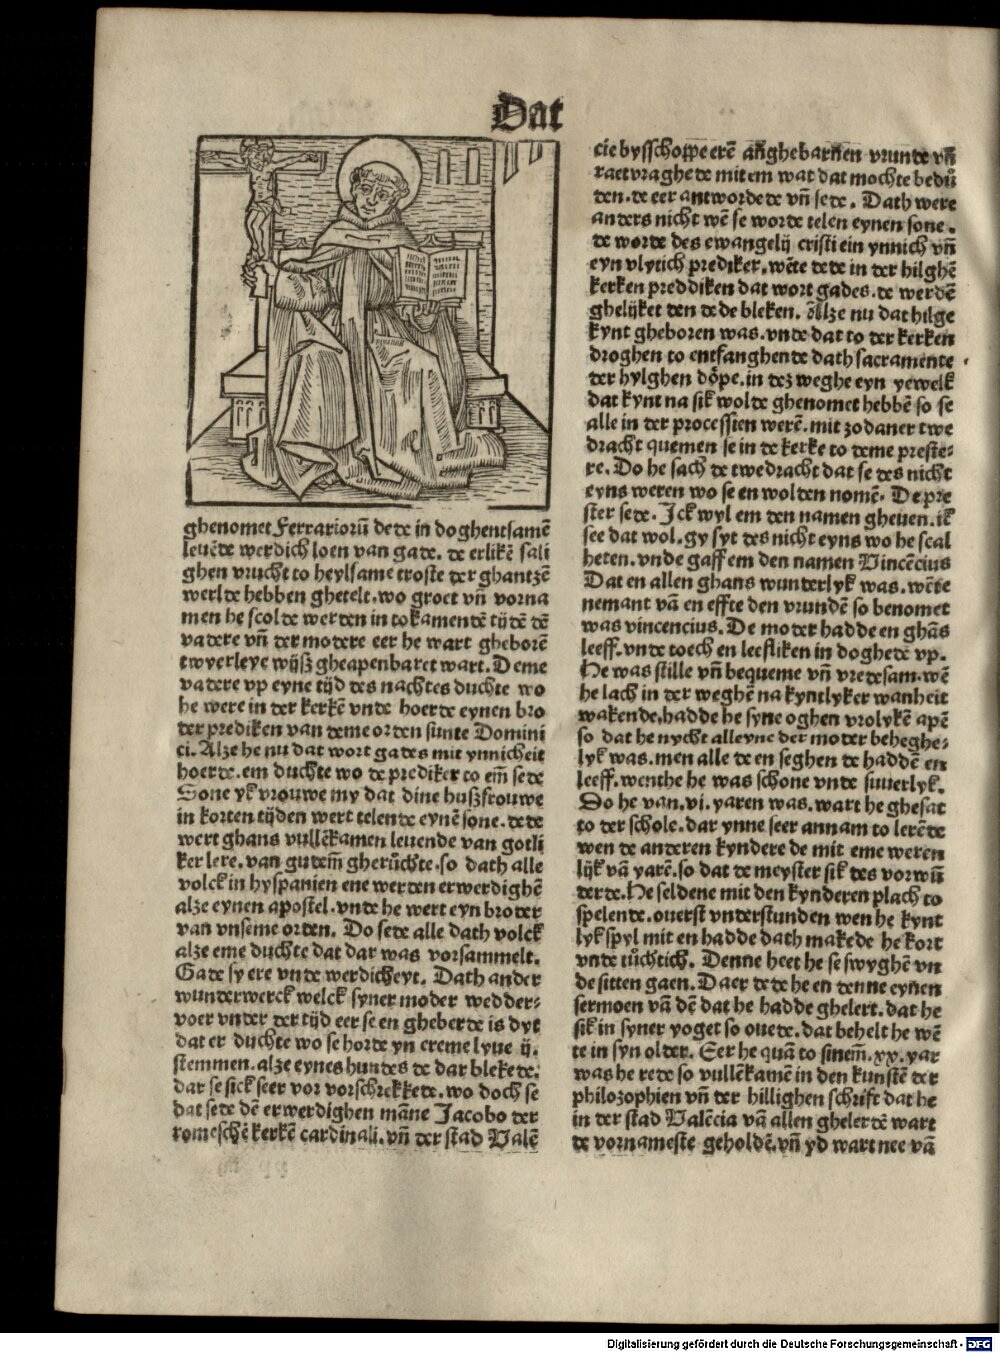 Dat
ghenomet Ferrariorū dede in doghentsamē
leuēde werdich loen van gade. de erlikē sali
ghen vrucht to heylsame troste der ghantzē
werlde hebben ghetelt. wo groet vñ vorna
men he scolde werden in tokamendē tijdē dē
vadere vñ der modere eer he wart gheborē
twyerleye wijß gheapenbaret wart. Deme
vadere vp eyne tijd des nachtes duchte wo
he were in der kerkē vnde hoerde eynen bro
der prediken van deme orden sunte Domini
ci. Alze he nu dat wort gades mit ynnicheit
hoerde. em duchte wo de prediker to em̄ sede
Sone yk vrouwe my dat dine hußfrouwe
in korten tijden wert telende eynē sone. dede
wert ghans vullēkamen leuende van gotli
ker lere. van gudem̄ gherůchte. so dath alle
volck in hyspanien ene werden erwerdighē
alze eynen apostel. vnde he wert eyn broder
van vnseme orden. Do sede alle dath volck
alze eme duchte dat dar was vorsammelt.
Gade sy ere vnde werdicheyt. Dath ander
wunderwerck welck syner moder wedder⸗
voer vnder der tijd eer se en gheberde is dyt
dat er duchte wo se horde yn ereme lyue ij.
stemmen. alze eynes hundes de dar blekede.
dar se sick seer vor vorschrekkede. wo doch se
dat sede dē erwerdighen māne Jacobo der
romeschē kerkē cardinali. vñ der stad Valē
cie bysschoppe erē an̄ghebarn̄en vrunde vñ
raet vraghede mit em wat dat mochte bedů
den. de eer antwordede vñ sede. Dath were
anders nicht wē se worde telen eynen sone.
de worde des ewangelij cristi ein ynnich vñ
eyn vlytich prediker. wēte dede in der hilghē
kerken preddiken dat wort gades. de werdē
ghelijket den dede bleken. Alze nu dat hilge
kynt gheboren was. vnde dat to der kerken
droghen to entfanghende dath sacramente
der hylghen döpe. in dez weghe eyn yewelk
dat kynt na sik wolde ghenomet hebbē so se
alle in der processien werē. mit zodaner twe
dracht quemen se in de kerke to deme preste⸗
re. Do he sach de twedracht dat se des nicht
eyns weren wo se en wolden nomē. De pre
ster sede. Jck wyl em den namen gheuen. ik
see dat wol. gy syt des nicht eyns wo he scal
heten. vnde gaff em den namen Vincēcius
Dat en allen ghans wunderlyk was. wēte
nemant vā en effte den vrundē so benomet
was vincencius. De moder hadde en ghās
leeff. vnde toech en leefliken in doghede vp.
He was stille vñ bequeme vñ vredesam. wē
he lach in der weghē na kyntlyker wanheit
wakende. hadde he syne oghen vrolykē apē
so dat he nycht alleyne der moder beheghe⸗
lyk was. men alle de en seghen de haddē en
leeff. wenthe he was schone vnde suuerlyk.
Do he van. vi. yaren was. wart he ghesat
to der schole. dar ynne seer annam to lerēde
wen de anderen kyndere de mit eme weren
lijk vā yarē. so dat de meyster sik des vorwū
derde. He seldene mit den kynderen plach to
spelende. ouerst vnderstunden wen he kynt
lyk spyl mit en hadde dath makede he kort
vnde tůchtich. Denne heet he se swyghē vn
de sitten gaen. Daer dede he en denne eynen
sermoen vā dē dat he hadde ghelert. dat he
sik in syner yoget so ouede. dat behelt he wē
te in syn older. Eer he quā to sinem̄. xx. yar
was he rede so vullēkamē in den kunstē der
philozophien vñ der hillighen schrift dat he
in der stad Valēcia vā allen ghelerdē wart
de vornameste geholdē. vñ yd wart nee vā
Digitalisierung gefördert durch die Deutsche Forschungsgemeinschaft - DFG